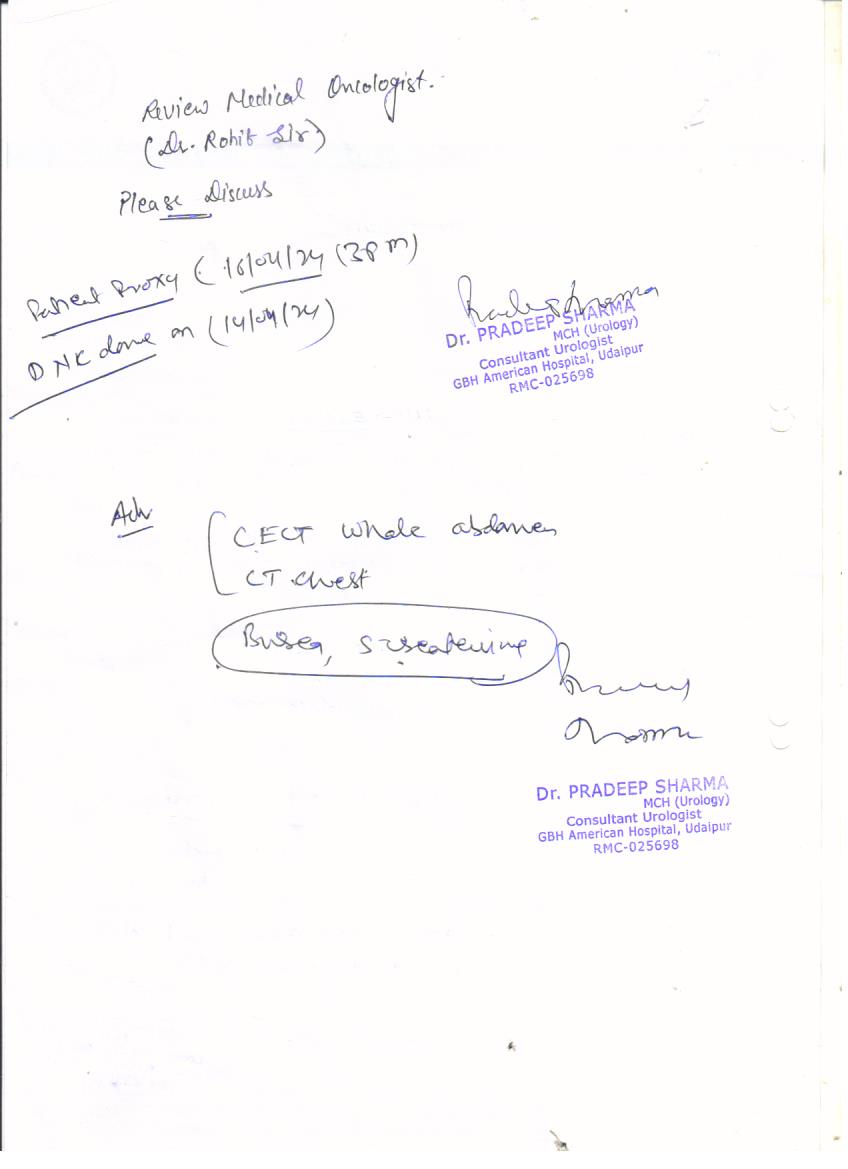 Review Medical Oncologist.
(Dr. Rohit Sir)
Please Discuss
Patient Proxy (16/04/24 (3pm)
DNK done on (14/04/24)
Dr. PRADEEP SHARMA
MCH (Urology)
Consultant Urologist
GBH American Hospital, Udaipur
RMC-025698
Adv
CECT whole abdomen
CT chest
S. creatinine
Dr. PRADEEP SHARMA
MCH (Urology)
Consultant Urologist
GBH American Hospital, Udaipur
RMC-025698